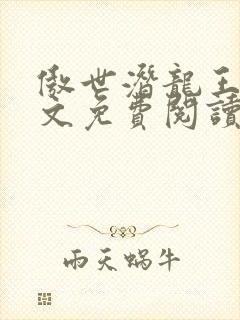 傲世潛龍王
文免費閱讀
雨天蝸牛